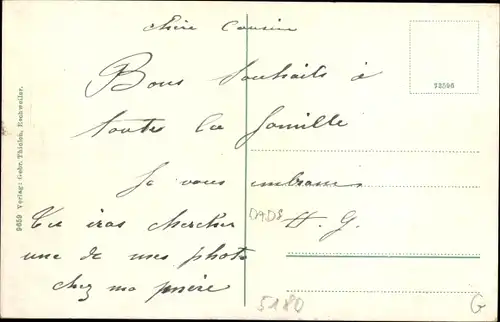 chère Cousine
Bons souhaits à
toutes la famille
Je vous embrasse
H. G.
Tu iras chercher
une de mes photo
chez ma
73596
9659 Verlag: Gebr. Thielen, Eschweiler.
5180
G